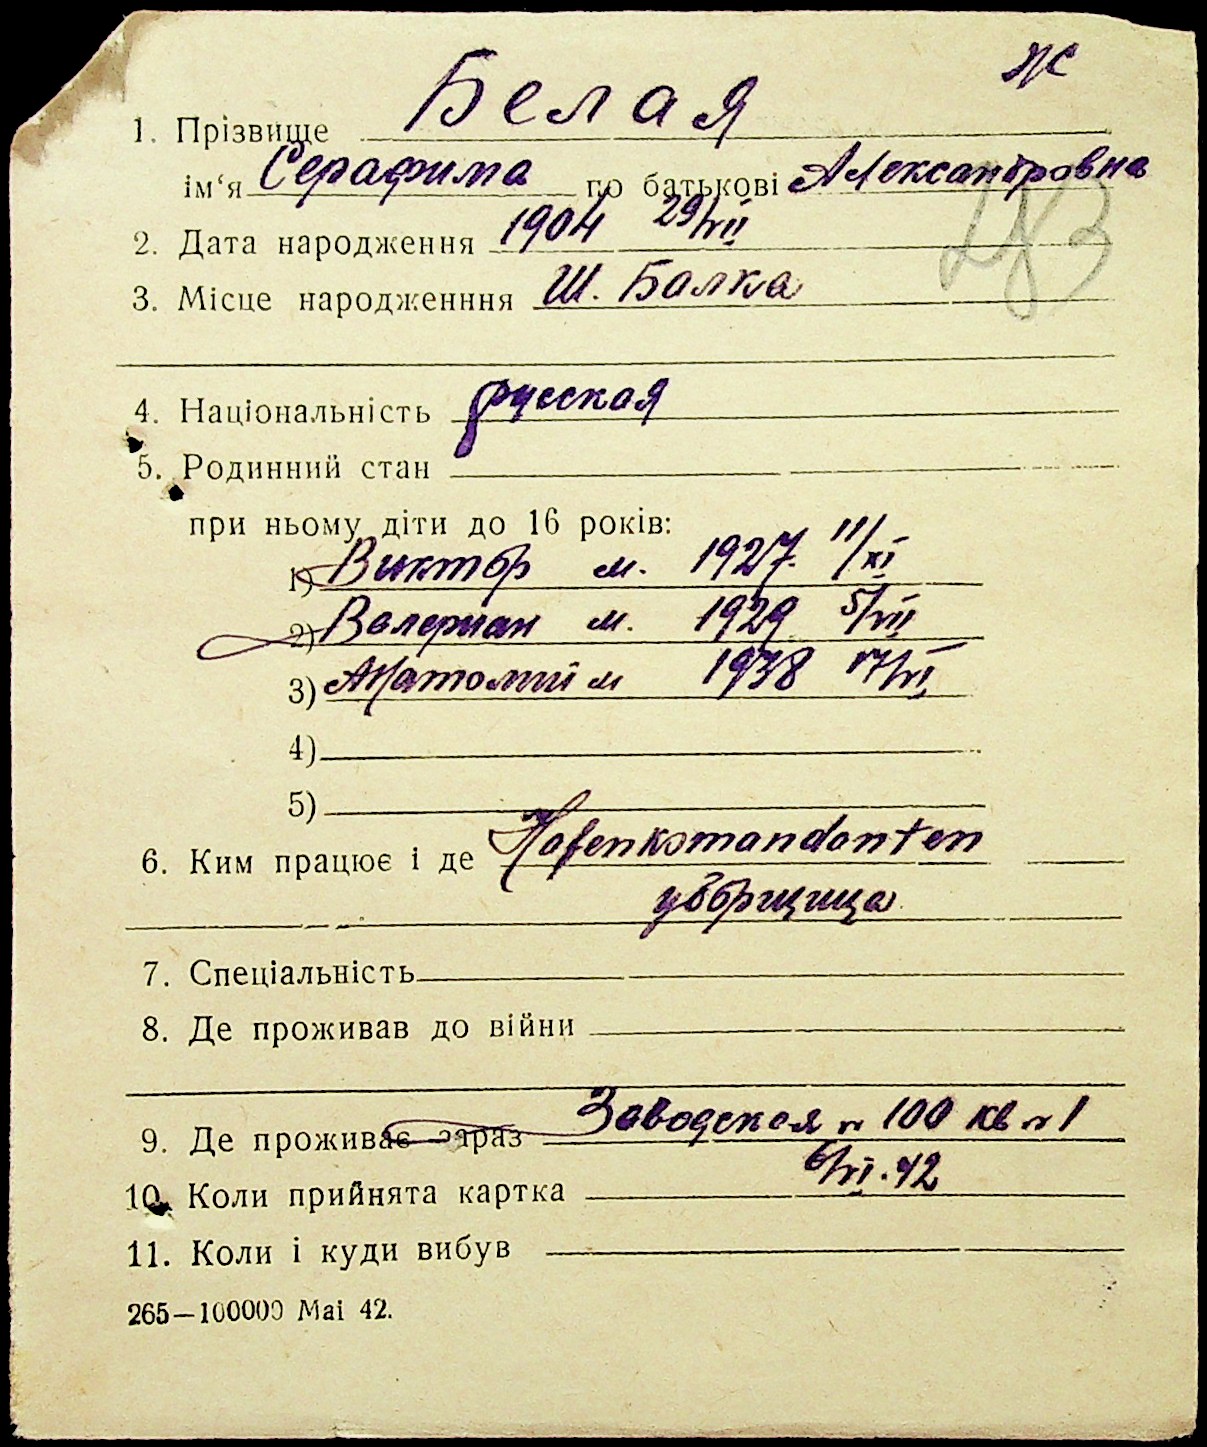 Ж
1. Прізвище Белая
ім‘я Серафима по батькові Александровна
2. Дата народження 1904 29/VII
283
3. Місце народженння Ш. Балка
4. Національність русская
5. Родинний стан
при ньому діти до 16 років:
1) Виктор м. 1927. 11/XI
2) Валериан м. 1929 5/VII
3) Анатолий м 1938 17/VI
4)
5)
6. Ким працює і де Hafenkomandanten
уборщица
7. Спеціальність
8. Де проживав до війни
9. Де проживає зараз Заводская № 100 кв № 1
10. Коли прийнята картка 6/VI.42
11. Коли і куди вибув
265—100000 Mai 42.